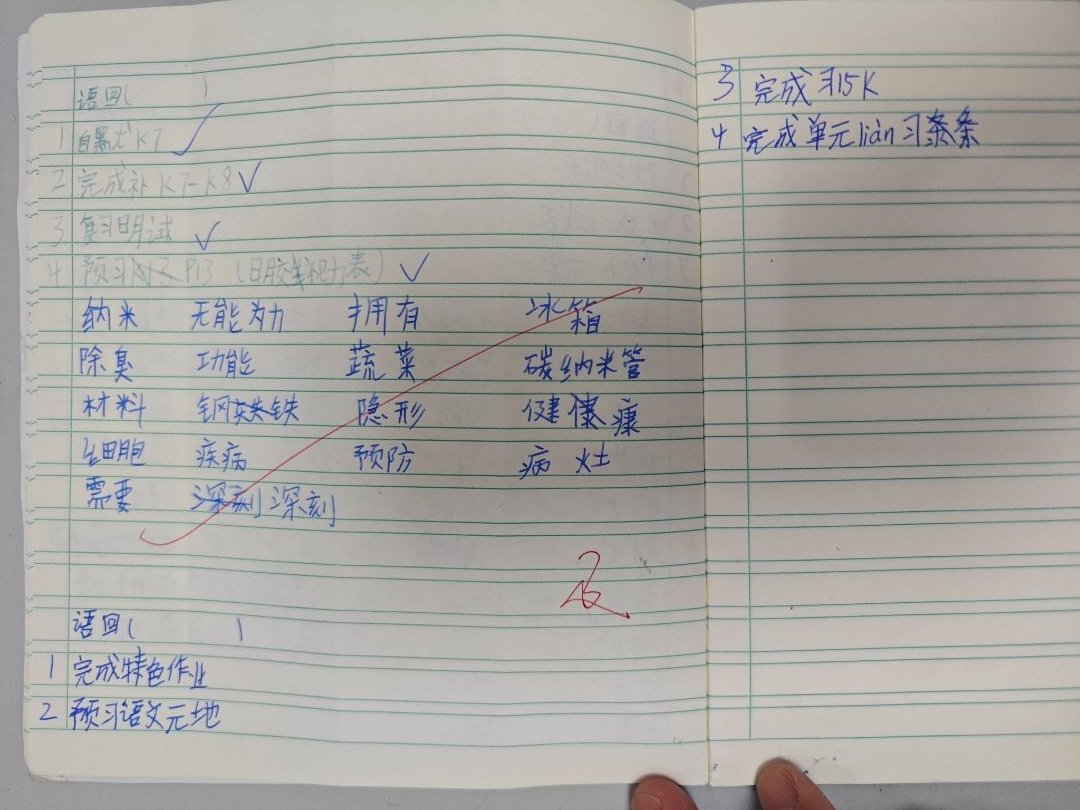 语回( )
1 自默七K7
2 完成补K7-K8
3 复习明试
4 预习 P13 (日胶表)
纳米 无能为力 拥有 冰箱
除臭 功能 蔬菜 碳纳米管
材料 钢铁 隐形 健康
细胞 疾病 预防 病灶
需要 深刻 深刻
语回( )
1 完成特色作业
2 预习语文元地
3 完成习15K
4 完成单元liàn习条